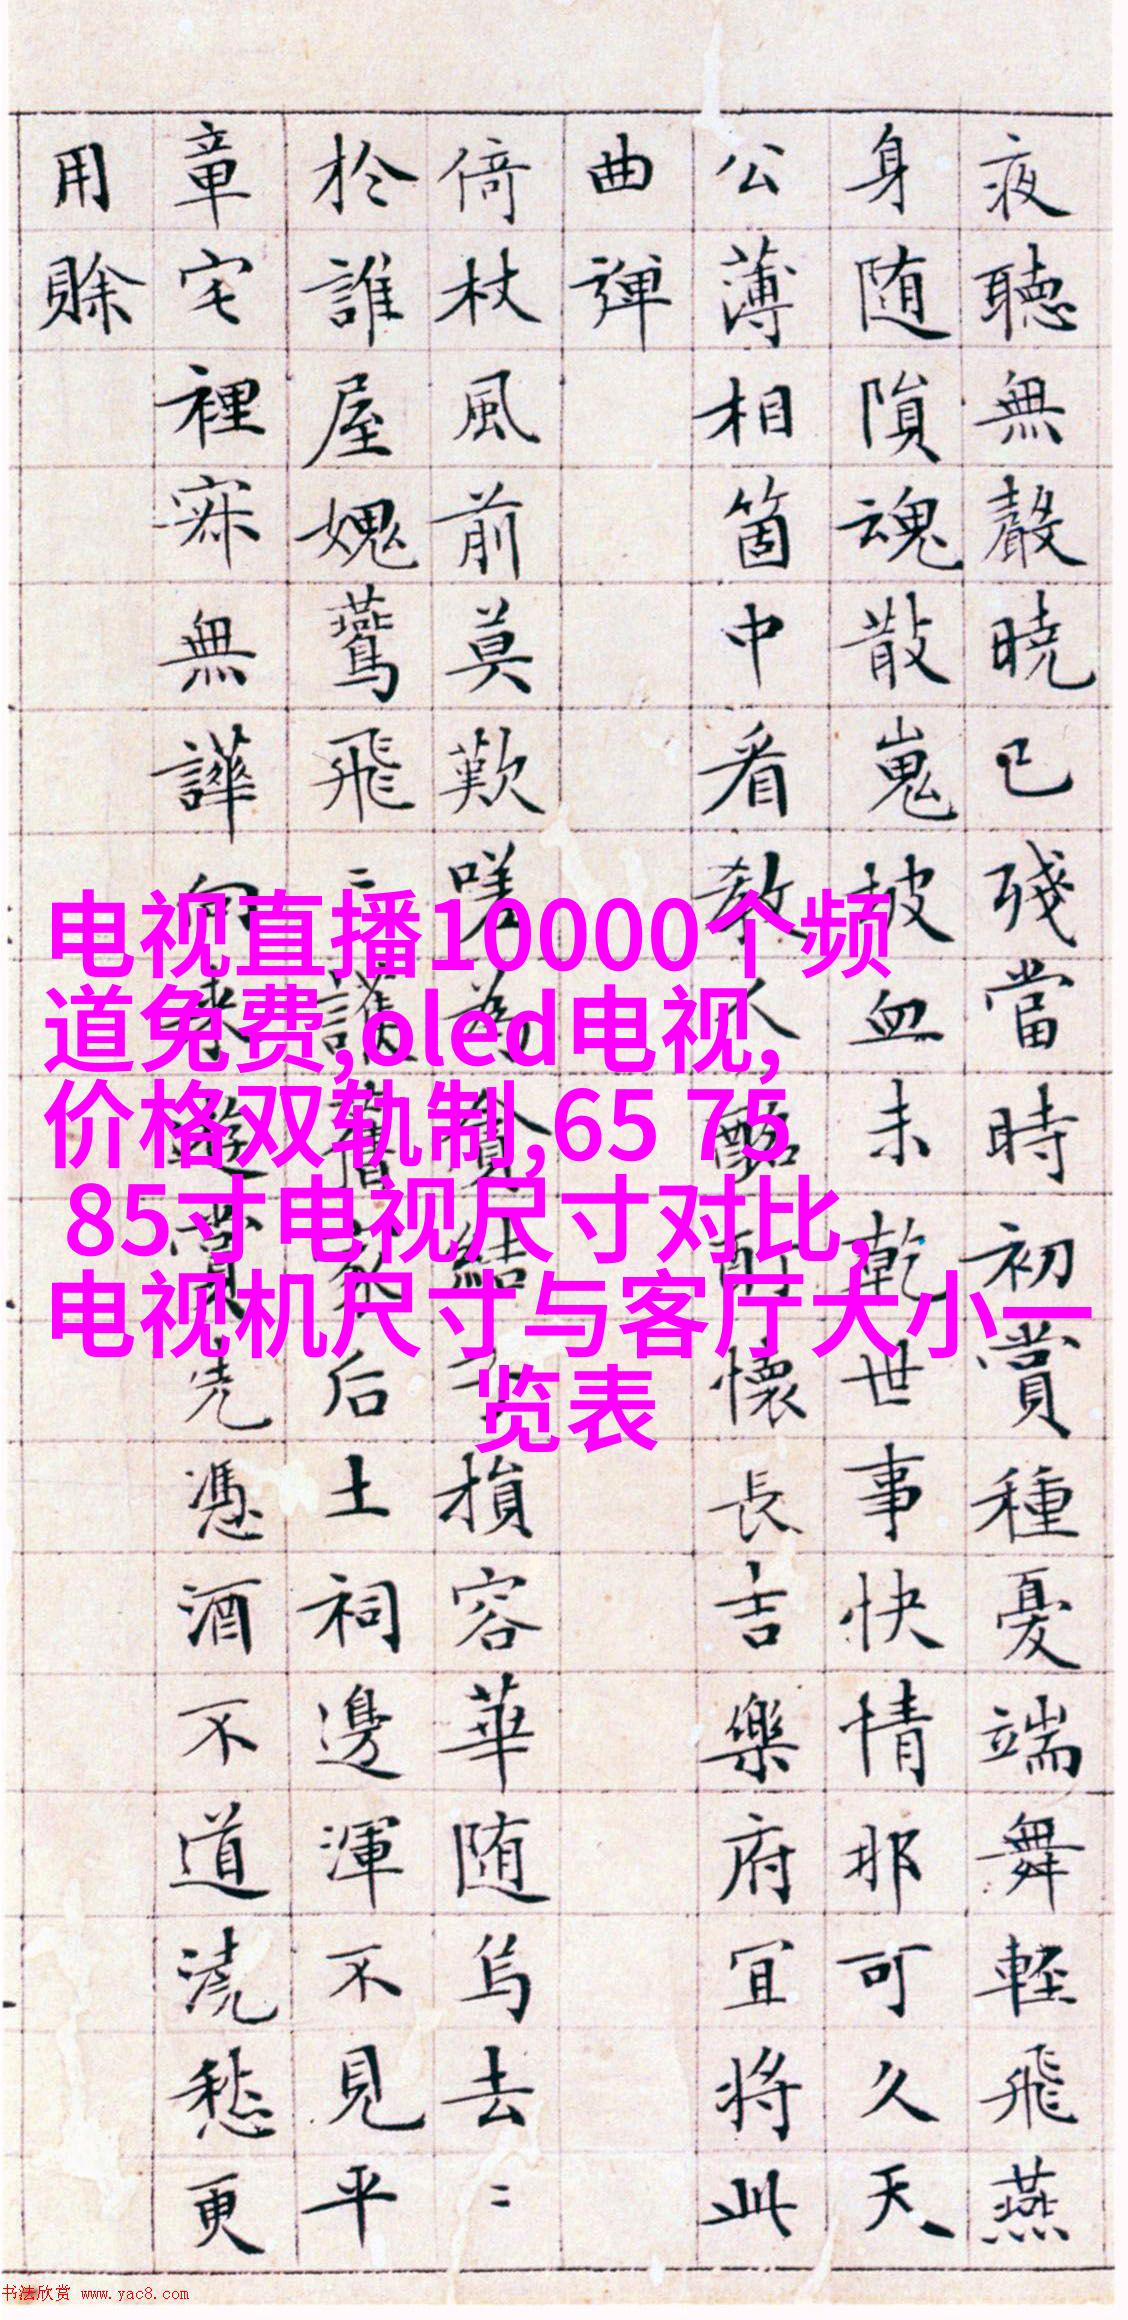 夜聽無聲曉已殘當時初賞種憂端舞輕飛燕
身随隕魂散嵬坡血未乾世事快情那可久天
公薄相箇中看教人酩酊懷長吉樂府宜將此
曲彈
倚杖風前莫歎嗟為貪結子損容華随烏去〻
於誰屋媿鷰飛〻護舊家后土祠邊渾不見平
章宅裡寂無譁向來遊賞先憑酒不道澆愁更
用賒
电视直播10000个频
道免费,oled电视,
价格双轨制,65 75
85寸电视尺寸对比,
电视机尺寸与客厅大小一
览表
书法欣赏 www.yac8.com